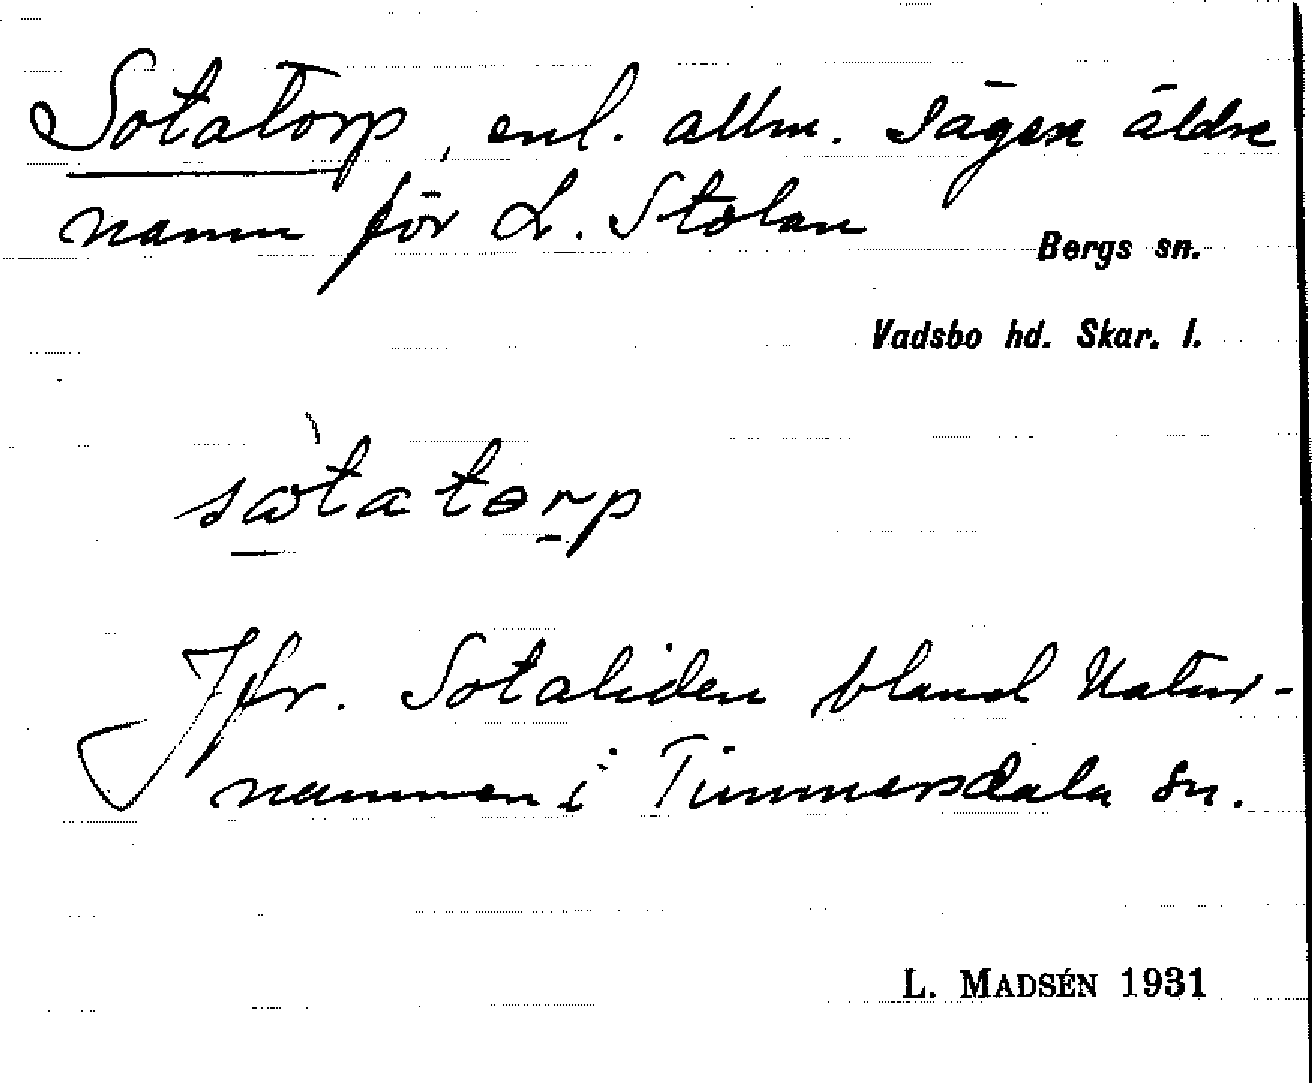 Sotatorp, enl. allm. sägen äldre
namn för L. Stolan
Bergs sn.
Vadsbo hd. Skar. l.
sò̱tatɵrp
Jfr. Sotaliden bland Natur-
namnen i Timmersdala sn.
L. MADSÉN 1931